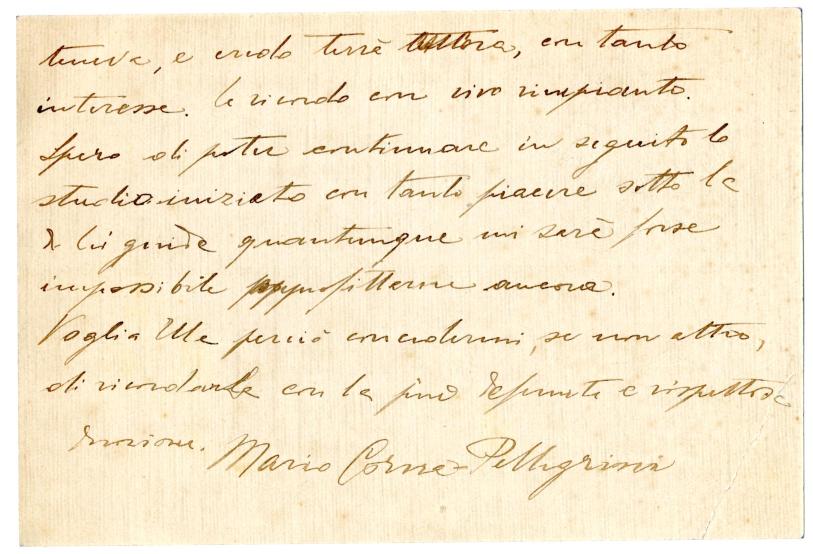 teneva, e credo terrà tuttora, con tanto
interesse. Le ricordo con vivo rimpianto.
Spero di poter continuare in seguito lo
studio iniziato con tanto piacere sotto la
di Lei guida quantunque mi sarà forse
impossibile approfittarne ancora.
Voglia Ella perciò concedermi, se non altro,
di ricordarLe con la più e rispettosa
devozione. Mario Corna-Pellegrini